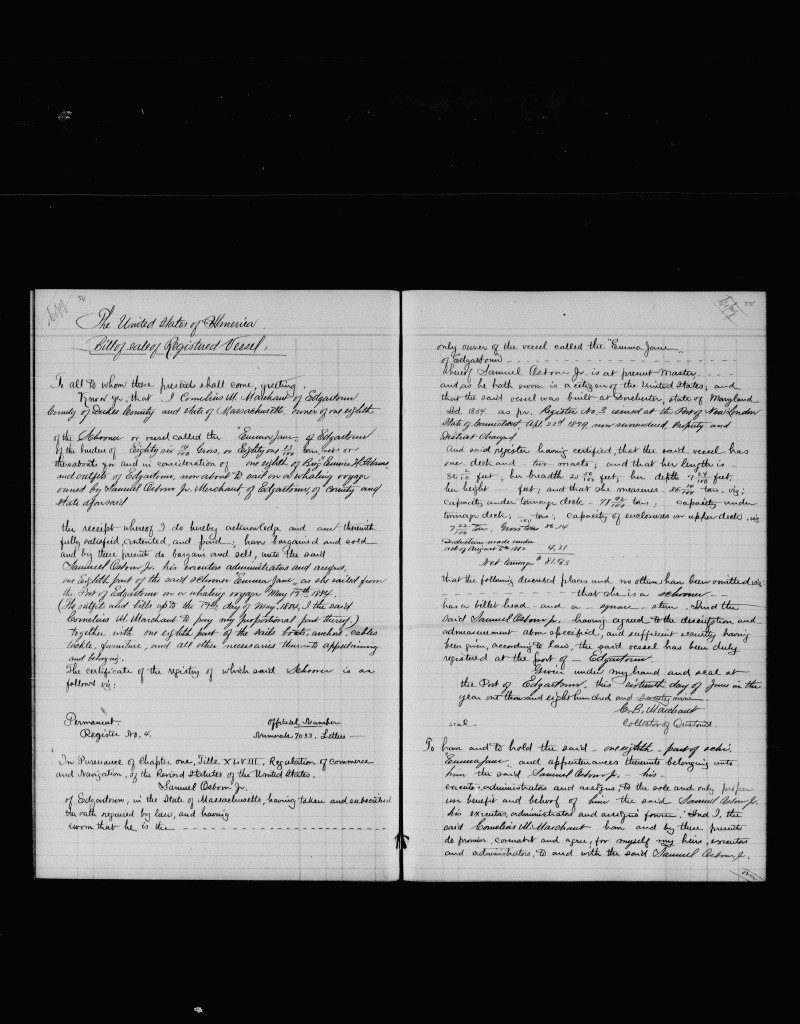 54
The United States of America.
Bill of sale of Registered Vessel.
To all to whom these presents shall come, greeting.
Know ye, that I Cornelius M. Marchant of Edgartown
County of Dukes County and state of Massachusetts, owner of one eighth
of the Schooner or vessel called the "Emma Jane" of Edgartown
of the burden of Eighty six 14/100 Gross, or Eighty one 83/100 tons, net or
thereabouts for and in consideration of one eighth of Brig "Eunice H. Adams"
and outfits of Edgartown, now about to sail on a whaling voyage
owned by Samuel Osborn Jr. Merchant of Edgartown, of County and
state aforesaid
the receipt whereof I do hereby acknowledge and am therewith
fully satisfied, contented, and paid, have bargained and sold
and by these presents do bargain and sell, unto the said
Samuel Osborn Jr. his executors administrators and assigns.
one Eighth part of the said schooner "Emma Jane", as she sailed from
the Port of Edgartown on a whaling voyage May 17th 1884.
(The outfit and bills up to the 17th day of May, 1884, I the said
Cornelius M. Marchant to pay my proportional part thereof)
together with one eighth part of the sails boats, anchors, cables
tackle, furniture, and all other necessaries thereunto appertaining
and belonging.
The certificate of the registry of which said Schooner is as
follows viz:
Permanent. Official Number
Register No. 4. Numerals 7033. Letters
In Pursuance of Chapter one, Title XLVIII, Regulation of Commerce
and Navigation, of the Revised Statutes of the United States.
Samuel Osborn Jr.
of Edgartown, in the State of Massachusetts, having taken and subscribed
the oath required by law, and having
sworn that he is the
only owner of the vessel called the "Emma Jane"
of Edgartown
whereof Samuel Osborn Jr. is at present Master
and as he hath sworn is a citizen of the United States, and
that the said vessel was built at Dorchester, state of Maryland
A.d. 1854. as pr. Register No. 3 issued at the Port of New London
State of Connecticut, Apl. 22d 1879, now surrendered, Property and
District Changed
And said register having certified, that the said vessel has
one deck and two masts; and that her length is
82 5/10 feet, her breadth 23 feet, her depth 7 feet,
her height feet; and that she measures 86 14/100 tons, viz:
capacity under tonnage deck 78 92/100 tons, capacity under
tonnage deck; 100 tons, capacity of enclosures on upper deck, viz
7 22/100 tons. Gross tons 86.14
Deductions made under
act of August 5th 1882 4.31
Net tonnage 81.83
that the following described places and no others have been omitted viz:
that she is a schooner
has a billet head and a square stern. And the
said Samuel Osborn Jr. having agreed to the description and
admeasurement above specified, and sufficient security having
been given, according to Law, the said vessel has been duly
registered at the port of Edgartown.
Given under my hand and seal at
the Port of Edgartown, this sixteenth day of June in the
year one thousand eight hundred and seventy nine.
C. B. Marchant
seal. Collector of Customs.
To have and to hold the said one eighth part of schr.
"Emma Jane", and appurtenances thereunto belonging unto
him the said Samuel Osborn Jr. his
executors administrators and assigns, to the sole and only proper
use benefit and behoof of him the said Samuel Osborn Jr.
his executors, administrators and assigns forever. And I, the
said Cornelius M. Marchant have and by these presents
do promise, covenant and agree, for myself my heirs, executors
and administrators, to and with the said Samuel Osborn Jr.
over